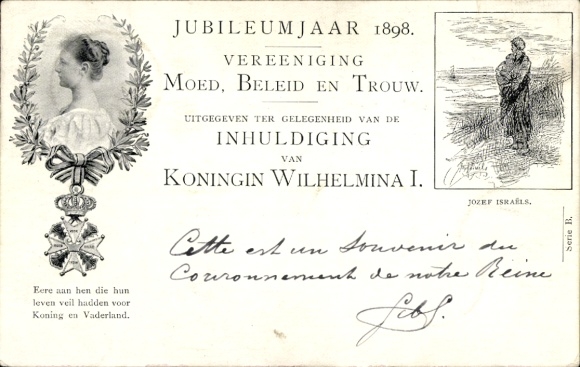 JUBILEUMJAAR 1898.
VEREENIGING
MOED, BELEID EN TROUW.
UITGEGEVEN TER GELEGENHEID VAN DE
INHULDIGING
VAN
KONINGIN WILHELMINA I.
JOZEF ISRAËLS.
Serie B.
Cette est un Souvenir du
Couronnement de notre Reine
Eere aan hen die hun
leven veil hadden voor
Koning en Vaderland.